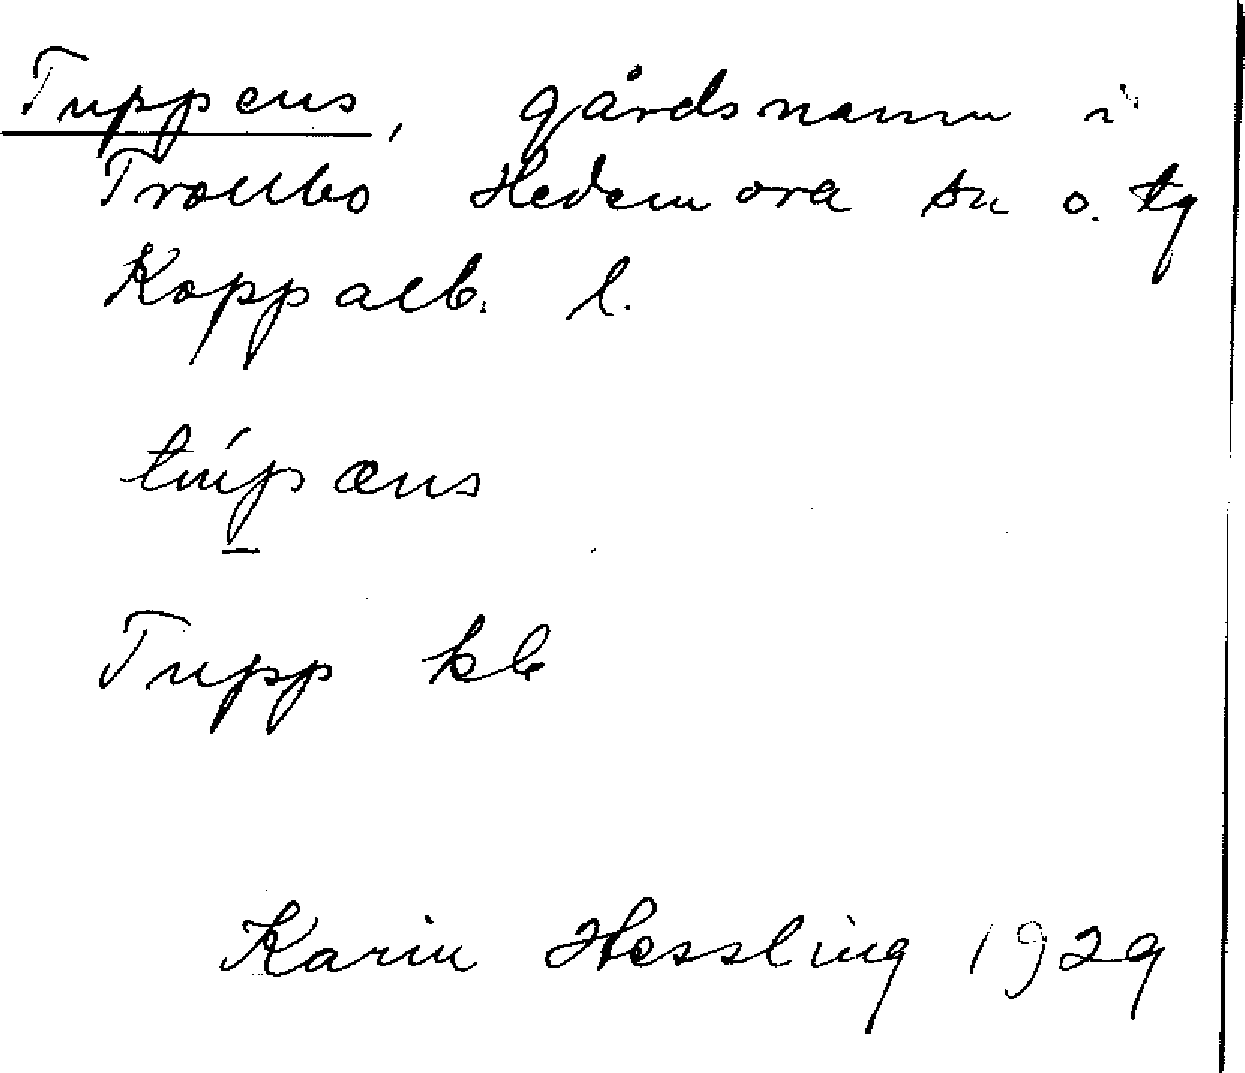 Tuppens, gårdsnamn i
Trollbo Hedemora sn o. tg
Kopparb. l.
túpæns
Tupp kb
Karin Hessling 1929